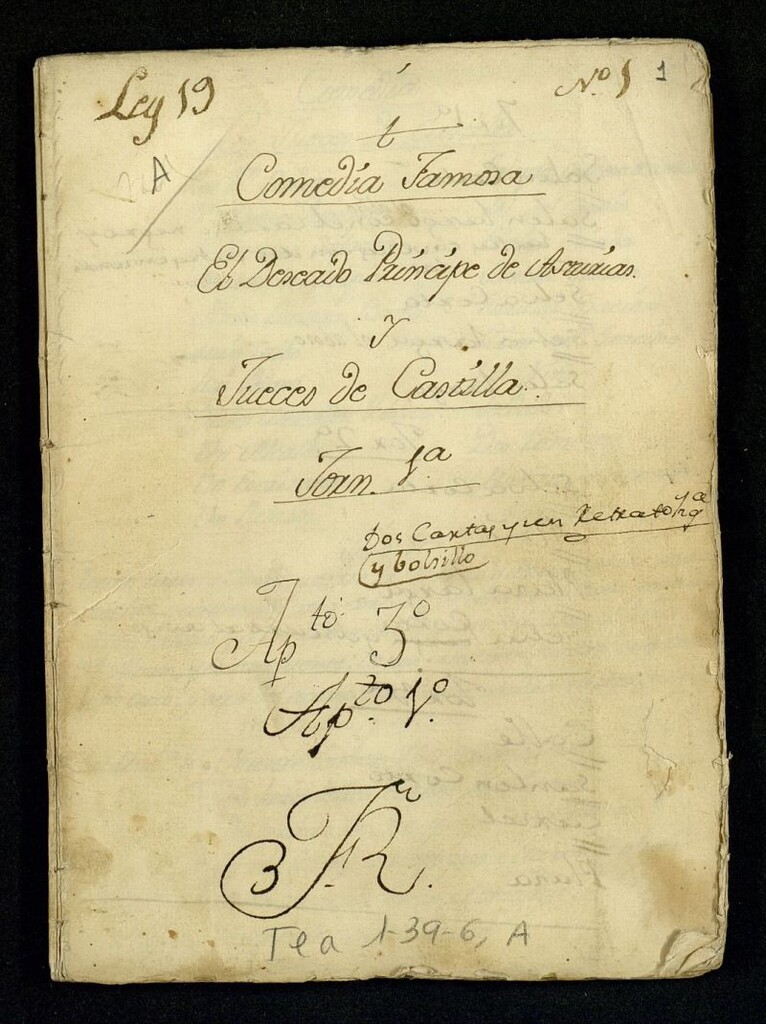 Leg 19
N.º 1 1
A
Comedia Famosa
El Deseado Principe de Asturias.
Y
Jueces de Castilla.
Jorn. 1.a
Dos Cartas y un Retrato
y bolsillo
Ap.to 3º
Ap.to 1.º
Tea 1-39-6, A